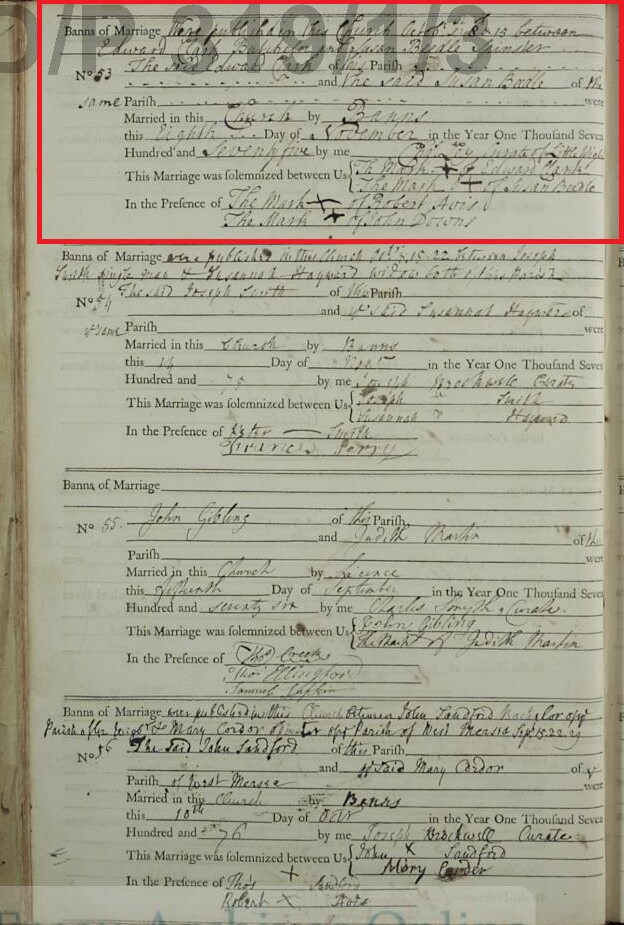 D/P 319/1/3
Banns of Marriage Were publish'd in this Church Octob. 1st 8. 15 between
Edward Clark Batchelor and Susan Beedle Spinster
The said Edward Clark of this Parish
No. 53 and the said Susan Beedle of the
same Parish were
Married in this Church by Banns
this Eighth Day of November in the Year One Thousand Seven
Hundred and Seventy five by me Curate of Little
This Marriage was solemnized between Us The Mark + of Edward Clark
The Mark + of Susan Beedle
In the Presence of The Mark + of Robert Avis
The Mark + of John Downs
Banns of Marriage were published in this Church Octr 8, 15-22 between Joseph
Smith single man & Susannah Hayward widow both of this Parish
No. 54 The said Joseph Smith of this Parish
and ye said Susannah Hayward of
ye same Parish were
Married in this Church by Banns
this 14 Day of Novr in the Year One Thousand Seven
Hundred and 75 by me Joseph Brockwell Curate
This Marriage was solemnized between Us Joseph Smith
Susannah Hayward
In the Presence of Peter Smith
Frances Perry
Banns of Marriage
No. 55. John Gibling of this Parish
and Judith Martin of this
Parish were
Married in this Church by Licence
this fourth Day of September in the Year One Thousand Seven
Hundred and seventy six by me Charles Smyth Curate.
This Marriage was solemnized between Us John Gibling
the Mark of Judith Martin
In the Presence of Thos Creek
Thos Ellingford
Samuel
Banns of Marriage were published in this Church between John Sandford Bachelor of ye
Parish & Mary Cordor of ye Parish of West Mersea Sepr 15. 22. 29
No. 56 The said John Sandford of this Parish
and ye said Mary Cordor of ye
Parish of West Mersea were
Married in this Church by Banns
this 10th Day of Octr in the Year One Thousand Seven
Hundred and 76 by me Joseph Brockwell Curate
This Marriage was solemnized between Us John X Sandford
Mary Corder
In the Presence of Thos + Sandford
Robert X Avis
Essex Archives Online